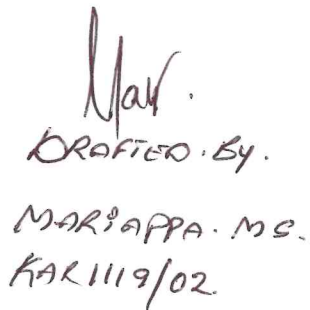 Mar.
DRAFTED. BY.
MARIAPPA. MS.
KAR1119/02.